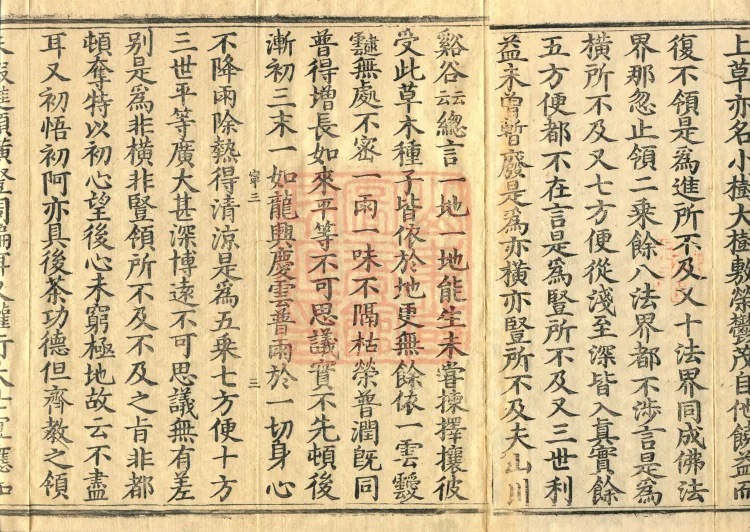 上草亦名小樹大樹敷榮鬱茂自他饒益而
復不領是爲進所不及又十法界同成佛法
界那忽止領二乘餘八法界都不涉言是爲
橫所不及又七方便從淺至深皆入真實餘
五方便都不在言是爲豎所不及又三世利
益未曾暫廢是爲亦橫亦豎所不及夫山川
谿谷云云總言一地一地能生未嘗揀擇攘彼
受此草木種子皆依於地更無餘依一雲靉
靆無處不密一雨一味不隔枯榮普潤旣同
普得增長如來平等不可思議實不先頓後
漸初三末一如龍興慶雲普雨於一切身心
寧三 三
不降雨除熱得清涼是爲五乘七方便十方
三世平等廣大甚深博遠不可思議無有差
別是爲非橫非豎領所不及不及之旨非都
頓奪特以初心望後心未窮極地故云不盡
耳又初悟初阿亦具後荼功德但齊教之領